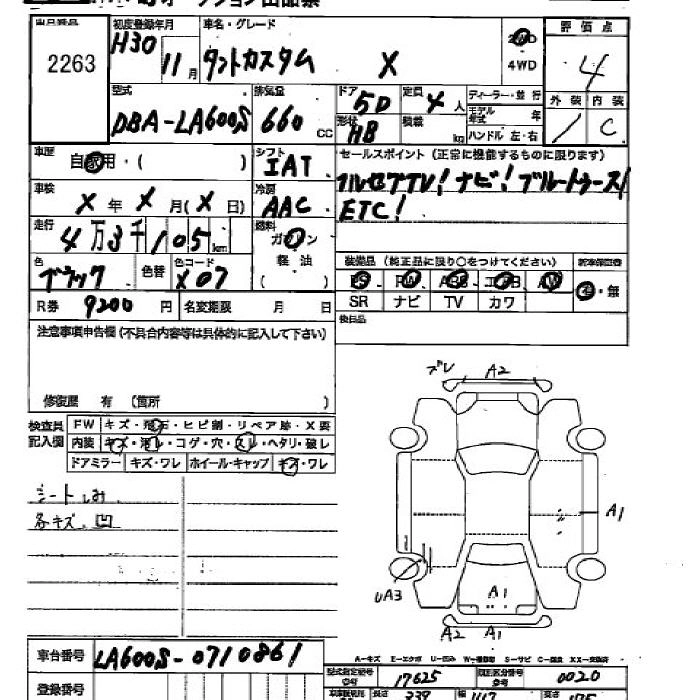 出品番号 初度登録年月 車名・グレード 評価点
2263 H30 11月 タントカスタム X 2WD 4WD 4
型式 排気量 ドア 定員 ディーラー・並行 外装 内装
DBA-LA600S 660 cc 5D 4人 モデル年式 年 1 C
形状 HB 積載 kg ハンドル 左・右
車歴 自家用・( ) シフト IAT セールスポイント(正常に機能するものに限ります)
車検 X年 X月(X日) 冷房 AAC フルセグTV! ナビ! ブルートゥース!
ETC!
走行 4万3千105km 燃料 ガソリン 軽油 ( )
色 ブラック 色替 色コード X07
装備品(純正品に限り○をつけてください) 新車保証書
PS PW ABS エアB AW 有・無
SR ナビ TV カワ
R券 9200円 名変期限 月 日 後日品
注意事項申告欄(不具合内容等は具体的に記入して下さい)
修復歴 有 (箇所
検査員記入欄 FW キズ・飛石・ヒビ割・リペア跡・X要
内装 キズ・汚レ・コゲ・穴・スレ・ヘタリ・破レ
ドアミラー キズ・ワレ ホイール・キャップ キズ・ワレ
シートしみ
各キズ、凹
ズレ A2
A1
UA3
A1
A2 A1
車台番号 LA600S-0710861
A-キズ E-エクボ U-凹み
型式指定番号 17625 類別区分番号 0020
登録番号 長さ 339 幅 147